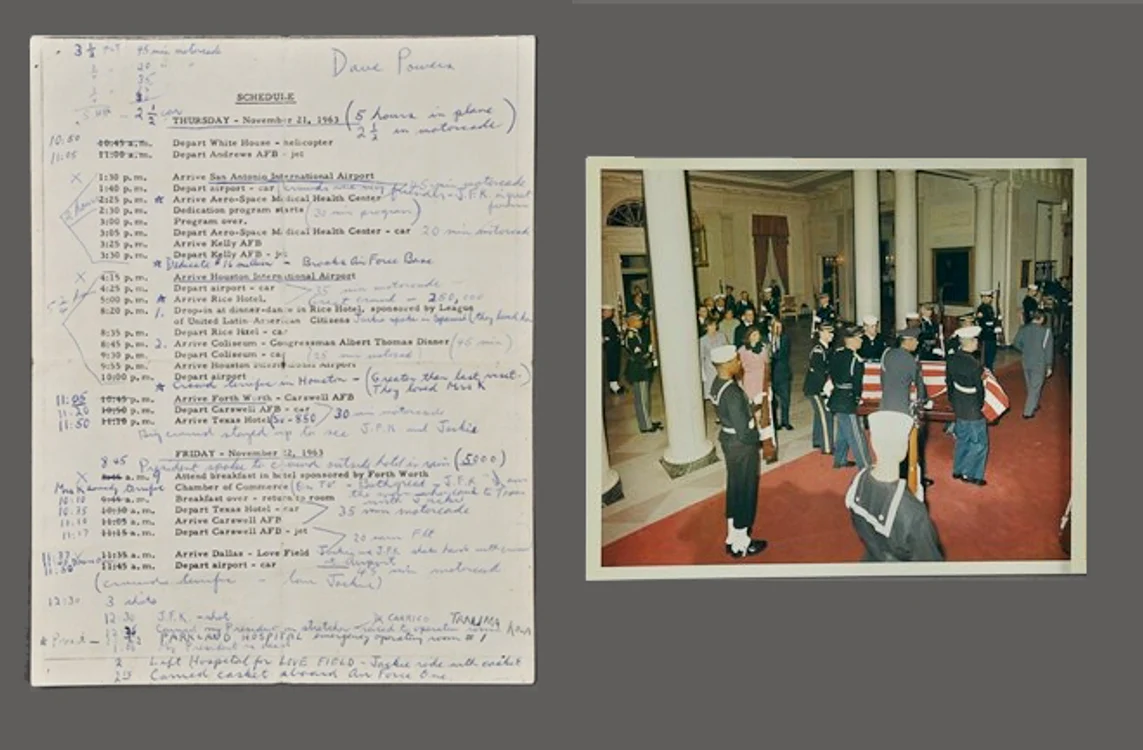 3 1/2 45 min motorcade
20
35
2 1/2 car
Dave Powers
SCHEDULE
THURSDAY - November 21, 1963 (5 hours in plane
2 1/2 in motorcade)
10:50 10:45 a.m. Depart White House - helicopter
11:05 11:00 a.m. Depart Andrews AFB - jet
X 1:30 p.m. Arrive San Antonio International Airport
1:40 p.m. Depart airport - car 45 min motorcade
2:25 p.m. * Arrive Aero-Space Medical Health Center
2:30 p.m. Dedication program starts (30 min program)
3:00 p.m. Program over.
3:05 p.m. Depart Aero-Space Medical Health Center - car 20 min motorcade
3:25 p.m. Arrive Kelly AFB
3:30 p.m. Depart Kelly AFB - jet
* Dedicate $16 million - Brooks Air Force Base
X 4:15 p.m. Arrive Houston International Airport
4:25 p.m. Depart airport - car 35 min motorcade
5:00 p.m. * Arrive Rice Hotel, Great crowd - 250,000
8:20 p.m. 1. Drop-in at dinner-dance in Rice Hotel, sponsored by League
of United Latin-American Citizens Jackie spoke in Spanish (they loved her
8:35 p.m. Depart Rice Hotel - car
8:45 p.m. 2. Arrive Coliseum - Congressman Albert Thomas Dinner (45 min)
9:30 p.m. Depart Coliseum - car (25 min motorcade)
9:55 p.m. Arrive Houston International Airport
10:00 p.m. Depart airport
* Crowd terrific in Houston - (Greater than last visit.
They loved Mrs K)
11:05 10:45 p.m. Arrive Forth Worth - Carswell AFB
11:20 10:50 p.m. Depart Carswell AFB - car 30 min motorcade
11:50 11:10 p.m. Arrive Texas Hotel 850
Big crowd stayed up to see J.F.K and Jackie
FRIDAY - November 22, 1963
8:45 President spoke to crowd outside hotel in rain (5000)
X 8:45 a.m. 9 Attend breakfast in hotel sponsored by Forth Worth
Mrs Kennedy terrific Chamber of Commerce
10:10 9:45 a.m. Breakfast over - return to room with Jackie
10:35 10:30 a.m. Depart Texas Hotel - car 35 min motorcade
11:10 11:05 a.m. Arrive Carswell AFB
11:17 11:15 a.m. Depart Carswell AFB - jet 20 min Flt
11:37 11:35 a.m. Arrive Dallas - Love Field Jackie and J.F.K. shake hands with crowd
at airport
11:45 a.m. Depart airport - car 45 min motorcade
(crowd terrific - love Jackie)
12:30 3 shots
12 30 J.F.K. - shot
Carried my President on stretcher
PARKLAND HOSPITAL emergency operating room #1
My President is dead
2 Left Hospital for LOVE FIELD - Jackie rode with casket
2 15 Carried casket aboard Air Force One